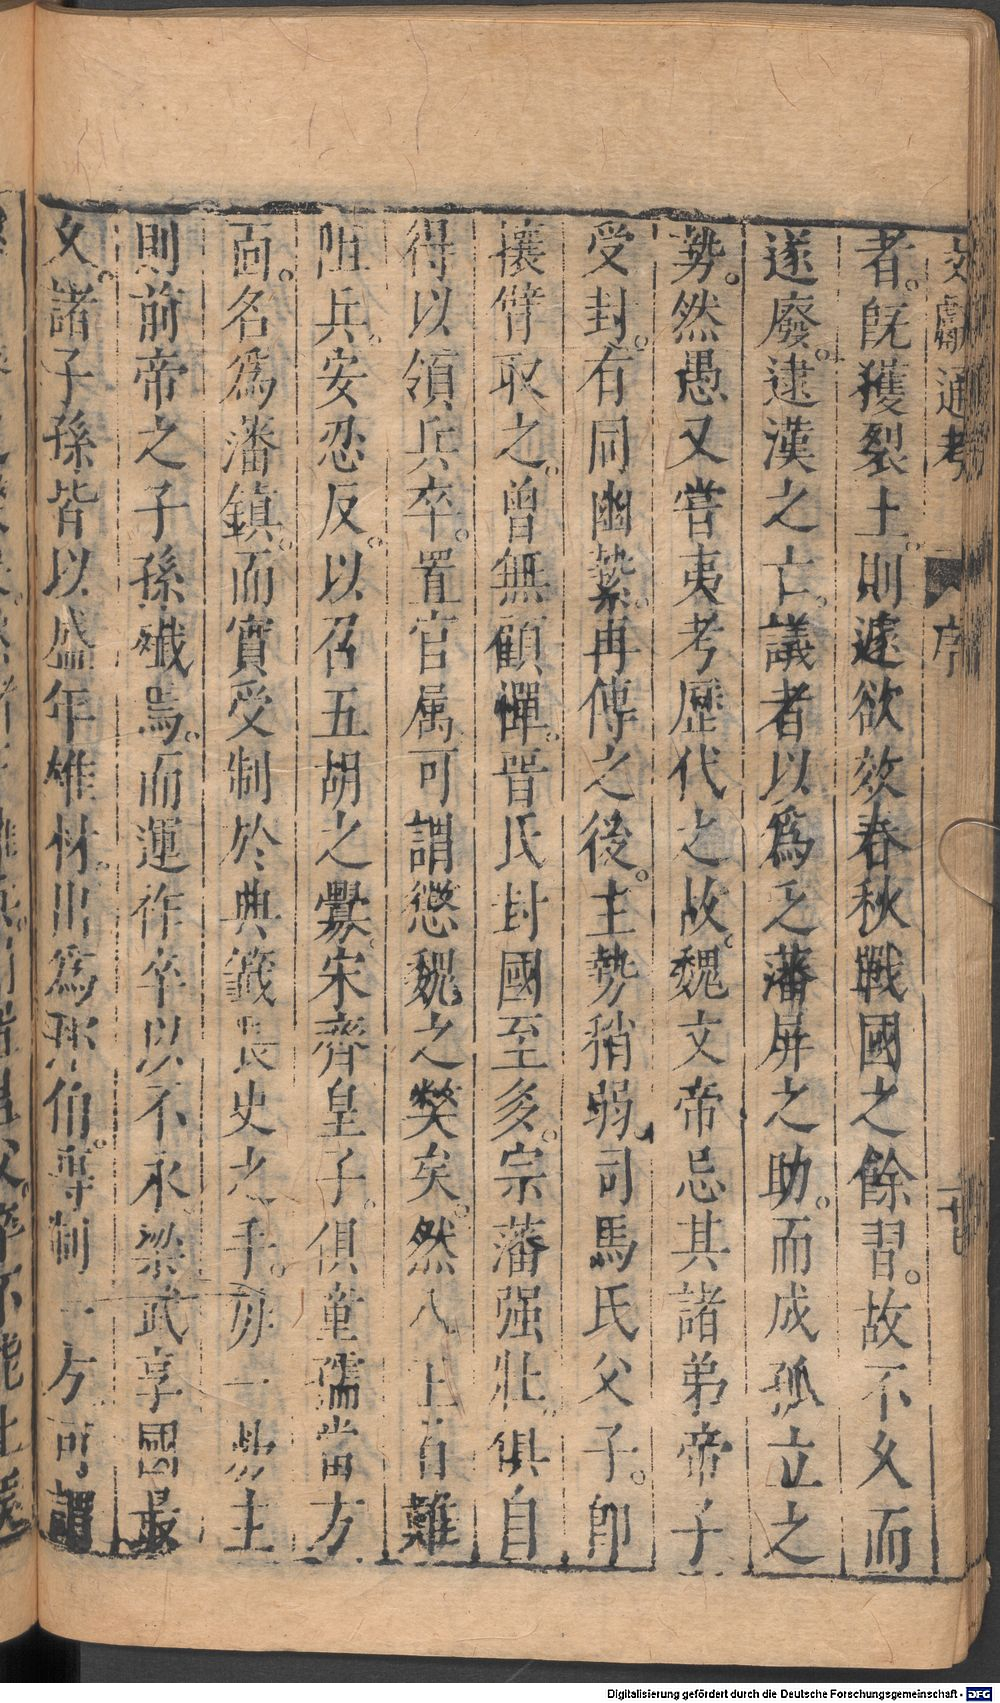 文獻通考 序
者。旣獲裂土。則遽欲效春秋戰國之餘習。故不久而
遂廢。逮漢之亡。議者以爲乏藩屏之助。而成孤立之
勢。然愚又嘗夷考歷代之故。魏文帝忌其諸弟帝子
受封。有同幽縶。再傳之後。主勢稍弱。司馬氏父子。卽
攘臂取之。曾無顧憚。晉氏封國至多。宗藩强壯。俱自
得以領兵卒。置官属。可謂懲魏之獘矣。然八王首難
阻兵。安忍反。以召五胡之釁。宋齊皇子。俱童孺當方
面。名爲潘鎮。而實受制於典籤長史之手。毎一易主
則前帝之子孫殱焉。而運祚卒以不永。梁武享國最
久。諸子孫皆以盛年雄材。出爲邦伯。專制一方。可謂
Digitalisierung gefördert durch die Deutsche Forschungsgemeinschaft - DFG